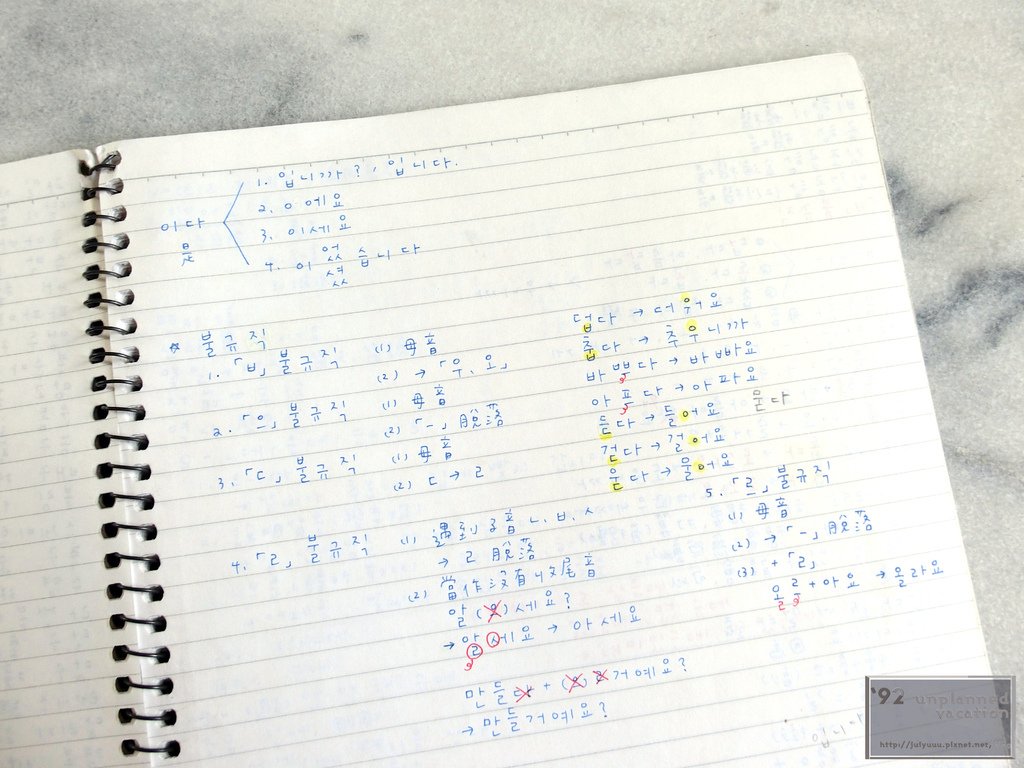 1. 입니까?, 입니다.
이다
2. 이에요
3. 이세요
4. 이 었 습니다
셨
* 불규칙
1. 「ㅂ」 불규칙 (1) 母音
(2) → 「우, 오」
2. 「으」 불규칙 (1) 母音
(2) 「ㅡ」 脫落
3. 「ㄷ」 불규칙 (1) 母音
(2) ㄷ → ㄹ
4. 「ㄹ」 불규칙 (1) 遇到子音 ㄴ, ㅂ, ㅅ
→ ㄹ 脫落
(2) 當作沒有收尾音
알 (으) 세요?
→ 알세요 → 아세요
만들다 + (으)ㄹ거예요?
→ 만들거예요?
덥다 → 더우어요
춥다 → 추우니까
바쁘다 → 바빠요
아프다 → 아파요
듣다 → 들어요 묻다
걷다 → 걸어요
묻다 → 물어요
5. 「르」 불규칙
(1) 母音
(2) → 「ㅡ」 脫落
(3) + 「ㄹ」
오르 + 아요 → 올라요
'92 unplanned
vacation
http://julyuuu.pixnet.net,